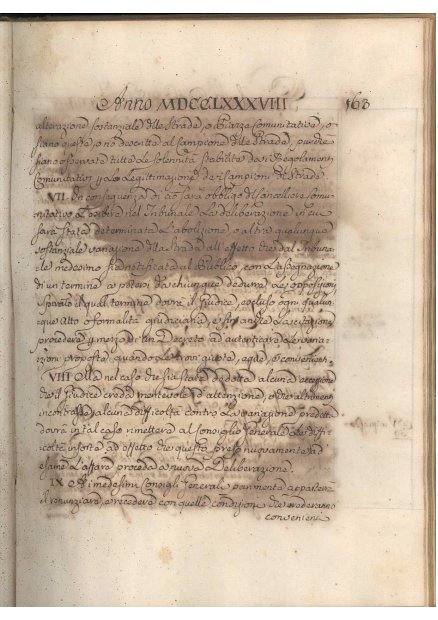 Anno MDCCLXXXVIII 163
alterazione sostanziale delle Strade, o Piazze Comunitative, o
siano queste, o nò descritte al Campione delle Strade, purchè
siano osservate tutte le solennità stabilite dai Regolamenti
Comunitativi per la legittimazione dei Campioni di Strade.
VII. In conseguenza di ciò sarà obbligo del Cancelliere Comu-
nitativo l'esibire nel Tribunale la deliberazione in cui
sarà stata determinata l'abolizione o altra qualunque
sostanziale variazione della Strada all'effetto che dal Tribuna-
le medesimo sia notificata al Pubblico, con l'assegnazione
di un termine a potervi da chiunque dedurre le opposizioni,
spirato il qual termine dovrà il Giudice, escluso ogn'qualun-
que Atto o formalità giudiciaria, e stragiudiciale
procedere per mezzo di un Decreto ad autenticare le varia-
zioni proposte, quando le trovi giuste, eque, e convenienti.
VIII. Ma nel caso che sia stata dedotta alcuna eccezione
che il Giudice creda meritevole d'attenzione, o che altrimenti
incontrasse alcuna difficoltà contro la variazione predetta
dovrà in tal caso rimettere al Consiglio Generale le diffi-
coltà insorte ad effetto che questo, preso nuovamente ad
esame l'affare proceda a nuova Deliberazione.
IX. Ai medesimi Consigli Generali parimente apparterrà
di renunziare, e recedere con quelle condizioni che crederanno
convenienti